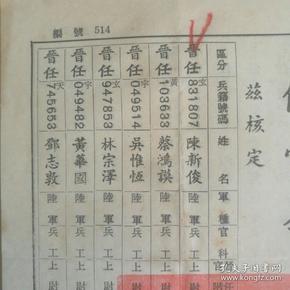 編號 514
茲核定
區分 兵籍號碼 姓名 軍種 官科
晉任 玄831807 陳新俊 陸軍 兵工 上尉
晉任 黃103633 蔡鴻謨 陸軍 兵工 上尉
晉任 049514 吳惟恆 陸軍 兵工 上尉
晉任 947853 林宗澤 陸軍 兵工 上尉
晉任 049482 黃華國 陸軍 兵工 上尉
晉任 天745653 鄧志敦 陸軍 兵工 上尉